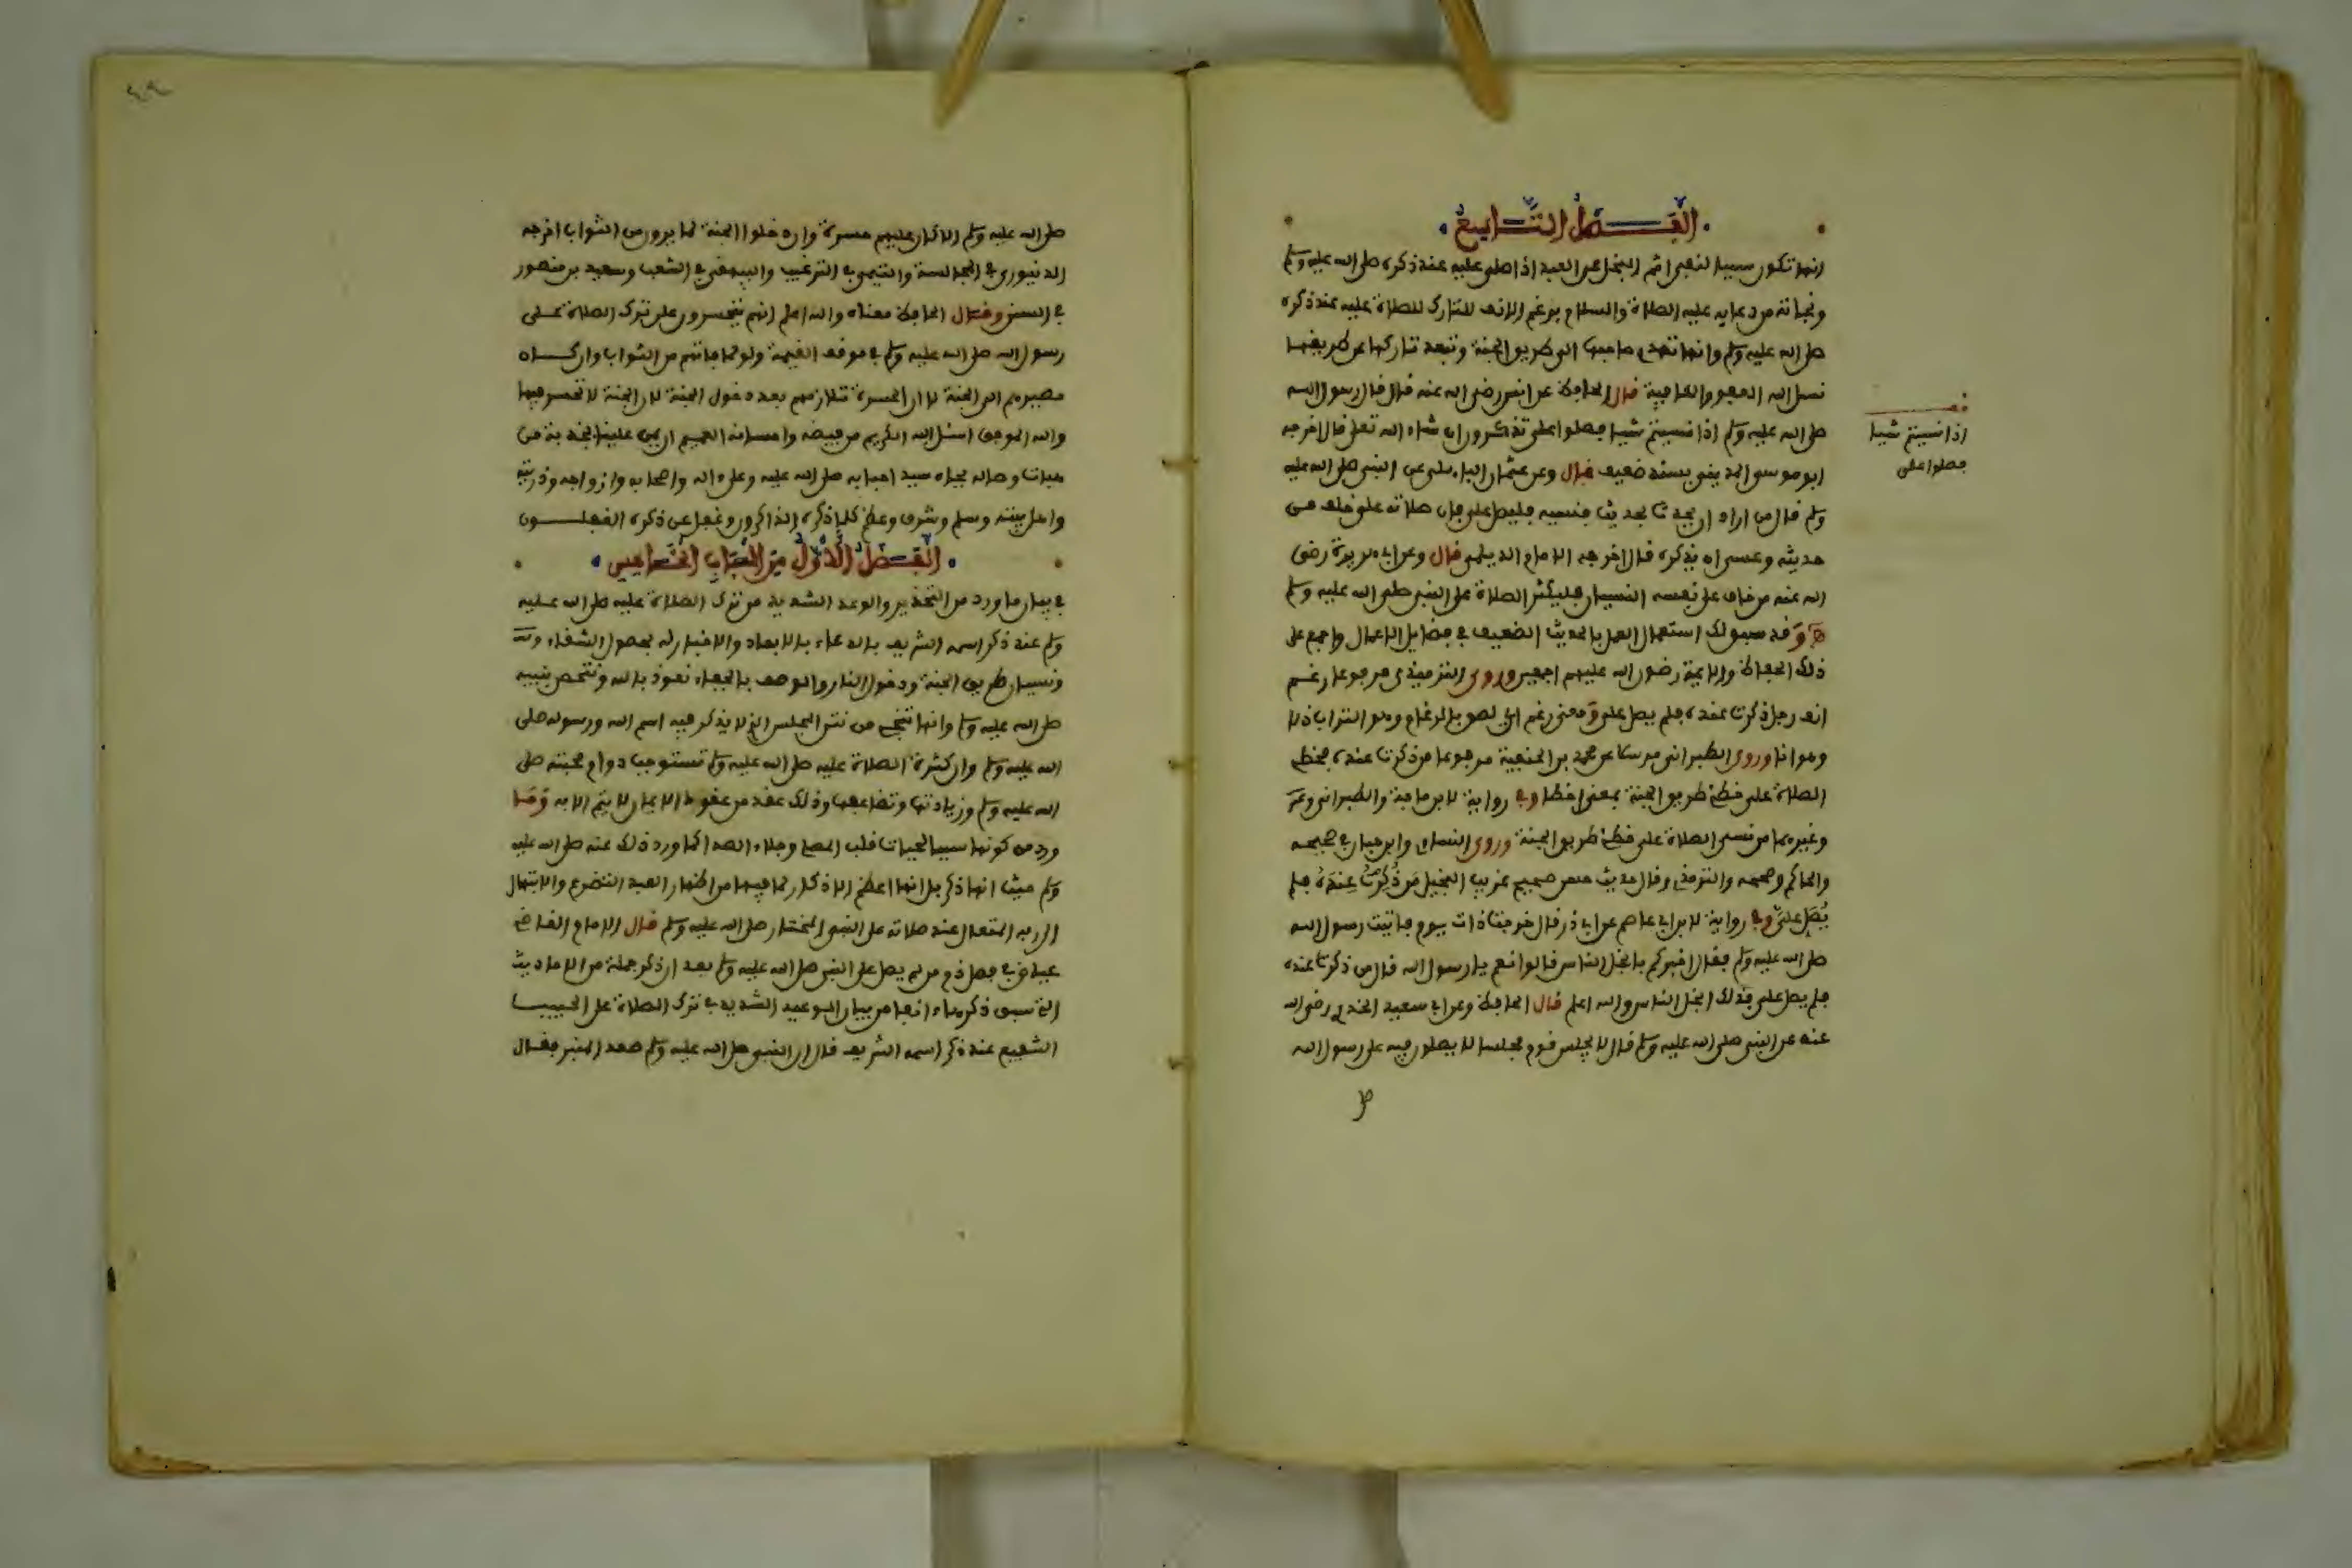 الفصل التاسع
انها تكون سببا لنفي اثم البخل عن العبد اذا صلى عليه عند ذكره صلى الله عليه وسلم
ونجاته من دعايه عليه الصلاة والسلام برغم الانف للتارك للصلاة عليه عند ذكره
صلى الله عليه وسلم وانها تهدي صاحبها الى طريق الجنة وتبعد تاركها عن طريقها
نسئل الله العفو والعافية قال الحافظ عن انس رضي الله عنه قال قال رسول الله
صلى الله عليه وسلم اذا نسيتم شيا فصلوا علي تذكروه ان شاء الله تعلى قال اخرجه
ابو موسى المديني بسند ضعيف قال وعن عثمان البا‍هلي عن النبي صلى الله عليه
وسلم قال من اراد ان يحدث بحديث فنسيه فليصل علي فان صلاته علي خلف من
حديثه وعسى ان يذكره قال اخرجه الامام الديلمي قال وعن ابي هريرة رضي
الله عنه من خاف على نفسه النسيان فليكثر الصلاة على النبي صلى الله عليه وسلم
وقد سبق لك استعمال العمل بالحديث الضعيف في فضايل الاعمال واجمع على
ذلك الحفاظ والايمة رضوان الله عليهم اجمعين وروى الترمذي مرفوعا رغم
انف رجل ذكرت عنده فلم يصل علي ومعنى رغم اي لصق بالرغام وهو التراب ذلا
وهوانا وروى الطبراني مرسلا عن محمد بن الحنفية مرفوعا من ذكرت عنده فخطئ
الصلاة علي خطئ طريق الجنة بمعنى اخطا وفي رواية لابن ماجة والطبراني
وغيرهما من نسي الصلاة علي خطئ طريق الجنة وروى النساي وابن حبان في صحيحه
والحاكم وصححه والترمذي وقال حديث حسن صحيح غريب البخيل من ذكرت عنده فلم
يصل علي وفي رواية لابن ابي عاصم عن ابي ذر قال خرجت ذات يوم فاتيت رسول الله
صلى الله عليه وسلم فقال اخبركم بابخل الناس قالوا نعم يا رسول الله قال من ذكرت عنده
فلم يصل علي فذلك ابخل الناس والله اعلم قال الحافظ وعن ابي سعيد الخدري رضي الله
عنه عن النبي صلى الله عليه وسلم قال لا يجلس قوم مجلسا لا يصلون فيه على رسول الله
اذا نسيتم شيا
فصلوا علي
صلى الله عليه وسلم الا كان عليهم حسرة وان دخلوا الجنة لما يرون من الثواب اخرجه
الدنيوري في المجالسة والتيمي في الترغيب والبيهقي في الشعب وسعيد بن منصور
في السنن وقال الحافظ معناه والله اعلم انهم يتحسرون على ترك الصلاة على
رسول الله صلى الله عليه وسلم في موقف القيمة ولو لما فاتهم من الثواب وان كان
مصيرهم الى الجنة لا ان الحسرة تلازمهم بعد دخول الجنة لان الجنة لا تحسر فيها
والله الموفق اسئل الله الكريم من فيضه واحسانه العميم ان يمن علينا بجذبة من
وصاله بجاه سيد احبابه صلى الله عليه وعلى ءاله واصحابه وازواجه وذريته
واهل بيته وسلم وشرف وعظم كلما ذكره الذاكرون وغفل عن ذكره الغفلون
الفصل الاول من الباب الخامس
في بيان ما ورد من التحذير والوعد الشديد من ترك الصلاة عليه صلى الله عليه
وسلم عند ذكر اسمه الشريف بالدعاء بالابعاد والاخبار له بحصول الشقاء
ونسيان طريق الجنة ودخول النار والوصف بالجفاء نعوذ بالله ونتحصن بنبيه
صلى الله عليه وسلم وانها تنجي من نتن المجلس الذي لا يذكر فيه اسم الله ورسوله صلى
الله عليه وسلم وان كثرة الصلاة عليه صلى الله عليه وسلم تستوجب دوام محبته صلى
الله عليه وسلم وزيادتها وتضاعفها وذلك عقد من عقود الايمان لا يتم الا به وما
ورد من كونها سببا لحيات قلب المصلي وجلاء الصدا كما ورد ذلك عنه صلى الله عليه
وسلم حيث انها ذكر بل انها اعظم الاذكار لما فيها من اظهار العبد التضرع والابتهال
الى ربه المتعال عند صلاته على النبي المختار صلى الله عليه وسلم قال الامام القاضي
عياض في فصل ذم من لم يصل على النبي صلى الله عليه وسلم بعد ان ذكر جملة من الاحاديث
التي سبق ذكرها ءانفا من بيان الوعيد الشديد في ترك الصلاة على الحبيب
الشفيع عند ذكر اسمه الشريف قال ان النبي صلى الله عليه وسلم صعد المنبر فقال